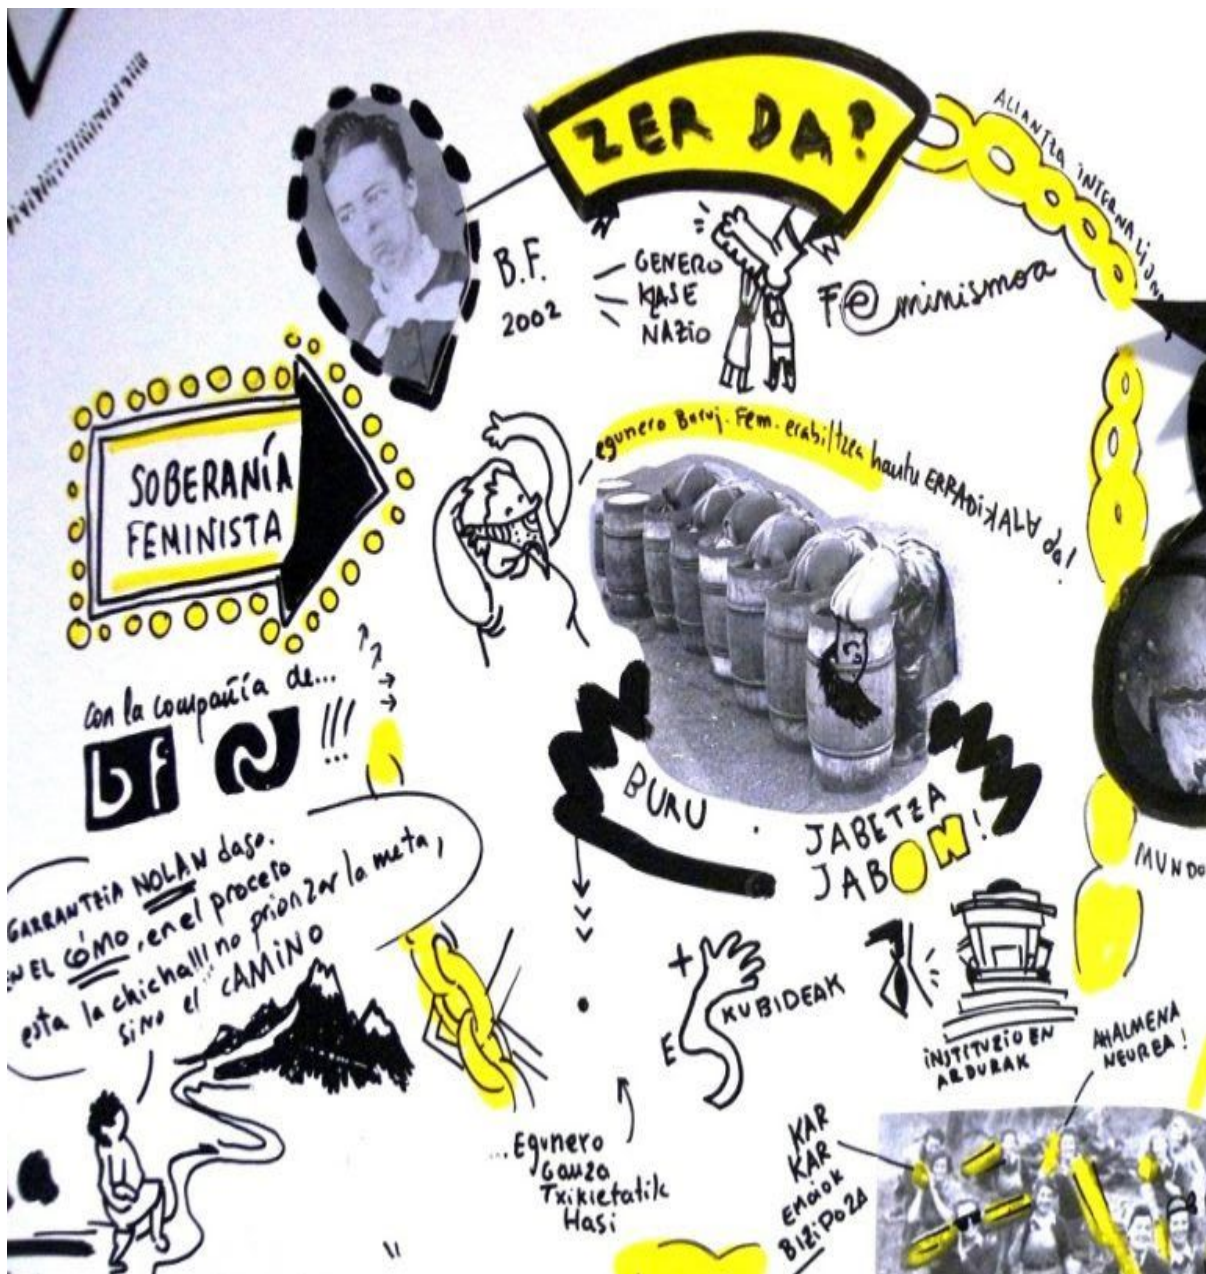 ZER DA?
ALIANTZA INTERNAZIONA
B.F.
2002
GENERO
KLASE
NAZIO
Feminismoa
SOBERANÍA
FEMINISTA
egunero Buruj. Fem. erabiltzea hautu ERRADIKALA da!
con la compañía de...
bf
!!!
...
BURU . JABETZA
JABON!
GARRANTZIA NOLAN dago.
EN EL CÓMO, en el proceso
esta la chicha!!! no priorizar la meta,
sino el CAMINO
MUNDO
+
ESKUBIDEAK
INSTITUZIOEN
ARDURAK
AHALMENA
NEUREA!
...Egunero
Gauza
Txikietatik
Hasi
KAR
KAR
EMAIOK
BIZIPOZA